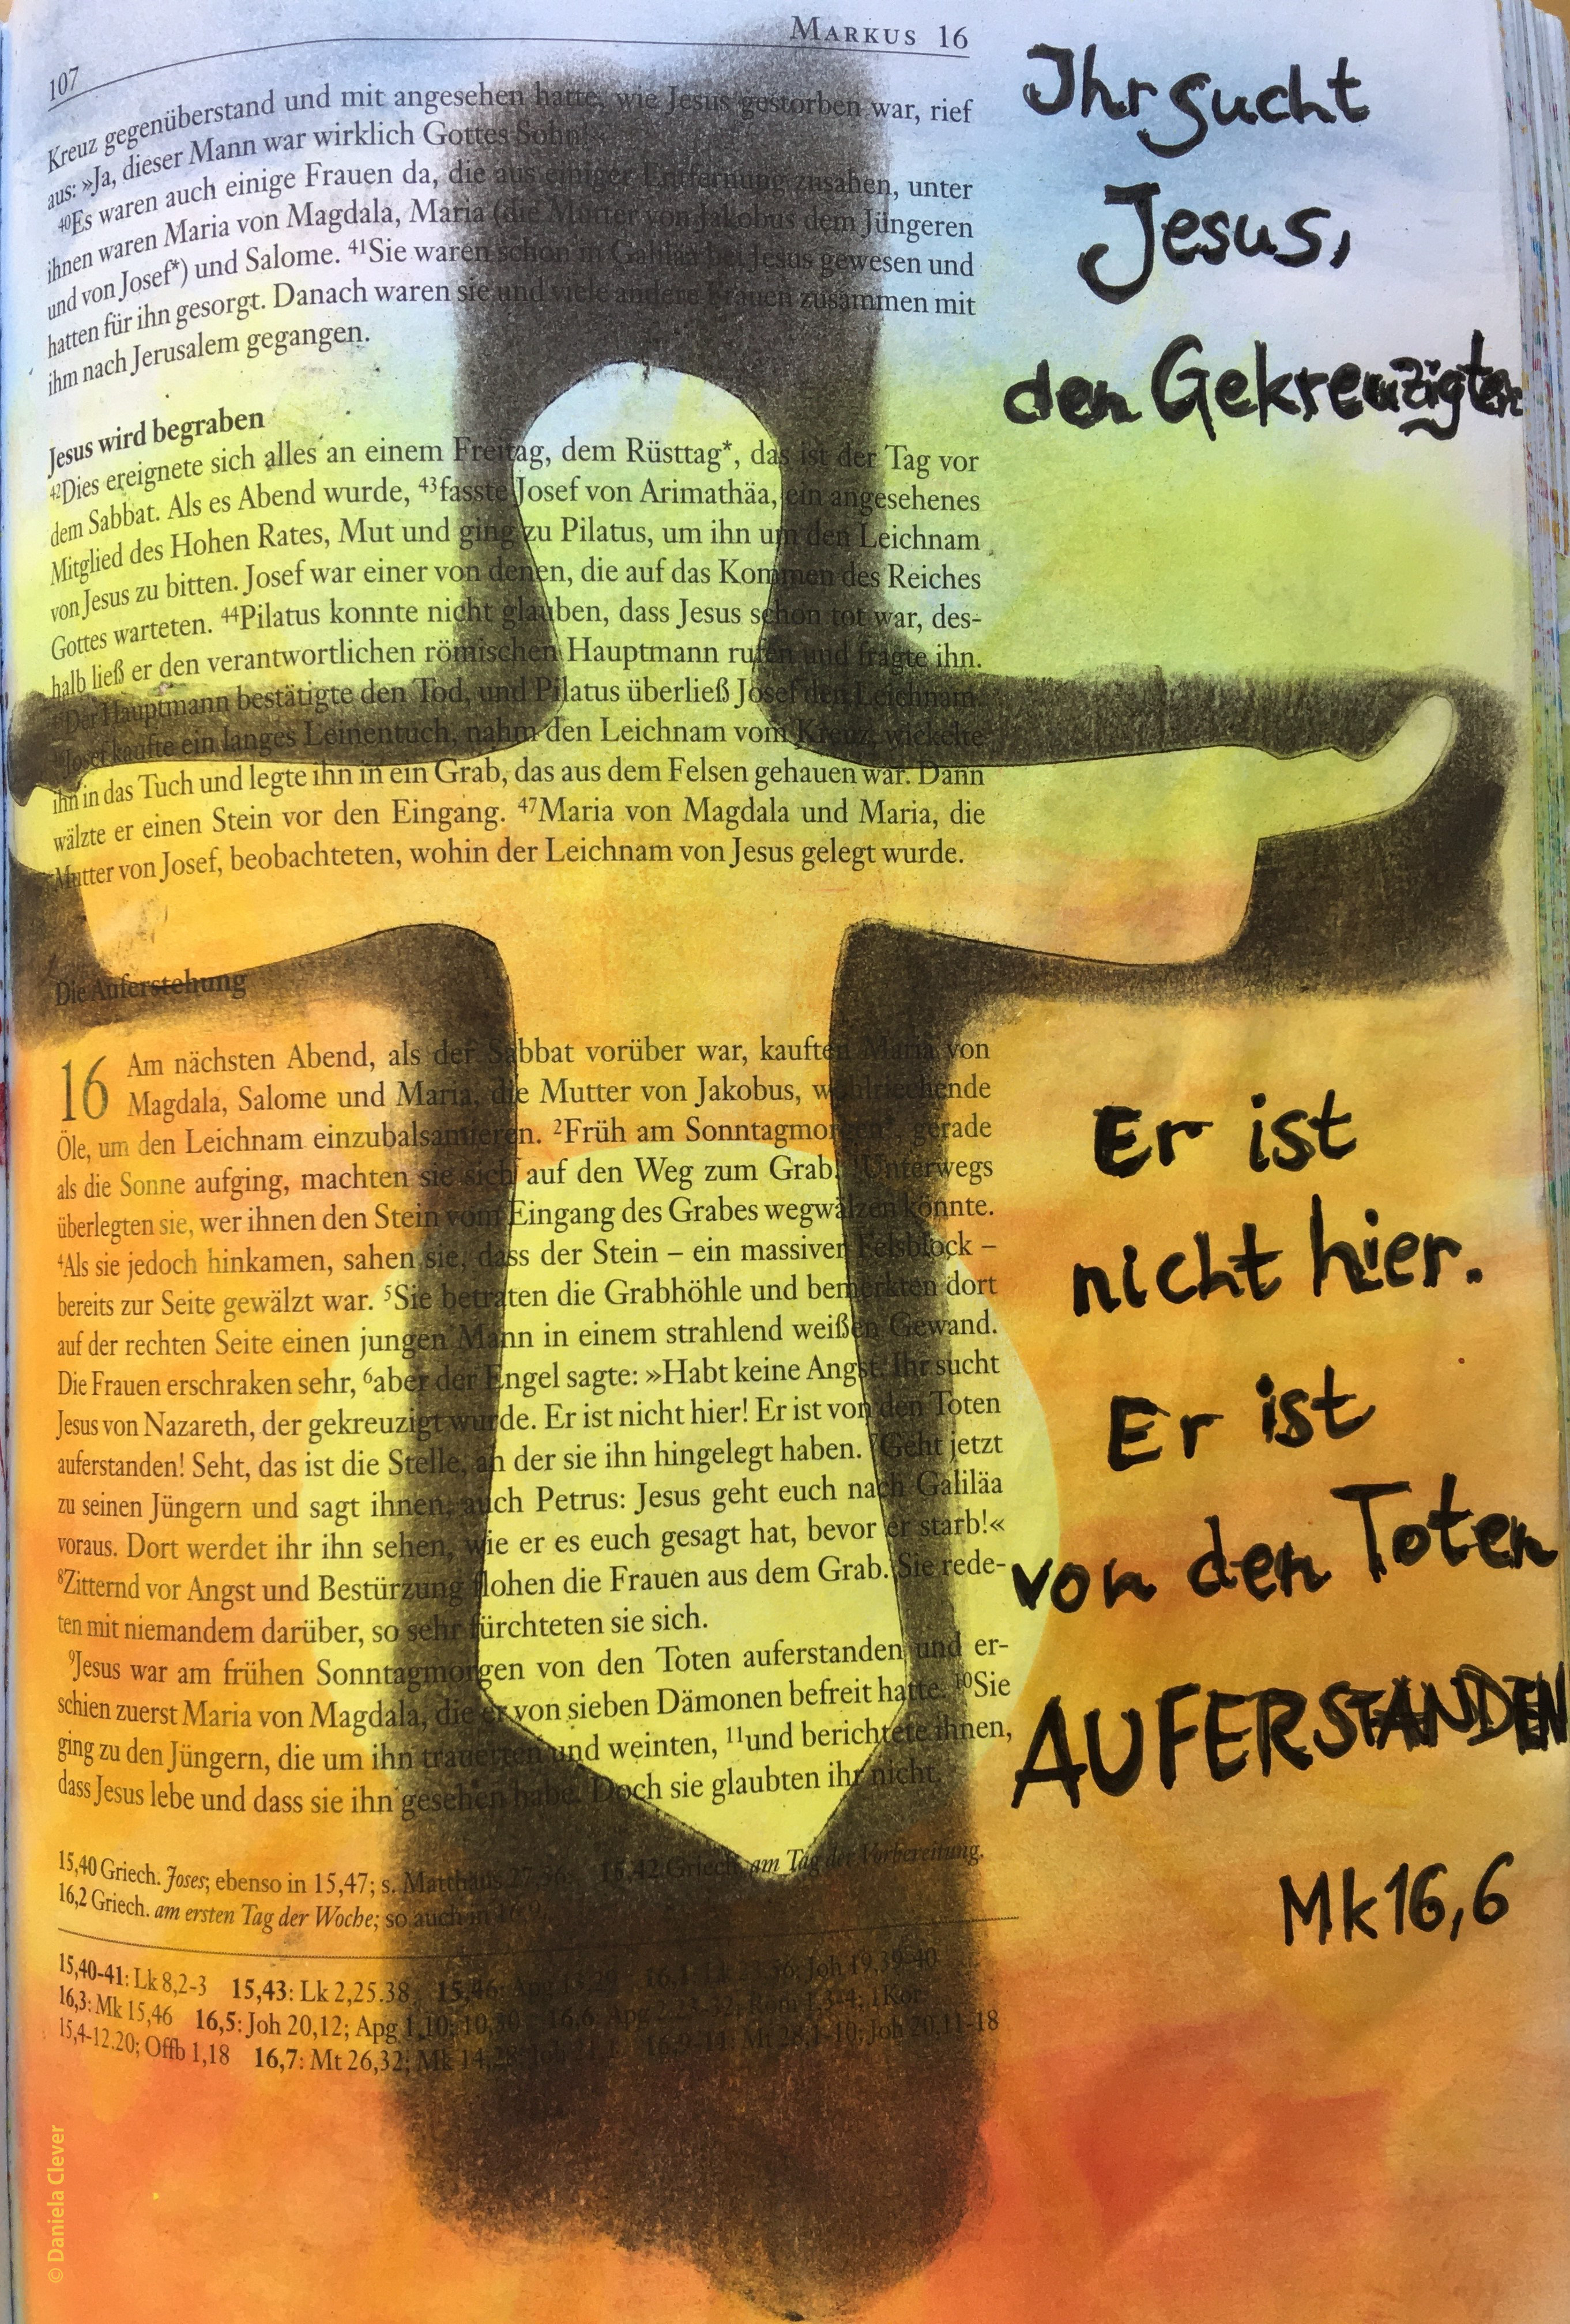 107
MARKUS 16
Kreuz gegenüberstand und mit angesehen hatte, wie Jesus gestorben war, rief
aus: »Ja, dieser Mann war wirklich Gottes Sohn!«
⁴⁰Es waren auch einige Frauen da, die aus einiger Entfernung zusahen, unter
ihnen waren Maria von Magdala, Maria (die Mutter von Jakobus dem Jüngeren
und von Josef*) und Salome. ⁴¹Sie waren schon in Galiläa bei Jesus gewesen und
hatten für ihn gesorgt. Danach waren sie und viele andere Frauen zusammen mit
ihm nach Jerusalem gegangen.
Jesus wird begraben
⁴²Dies ereignete sich alles an einem Freitag, dem Rüsttag*, das ist der Tag vor
dem Sabbat. Als es Abend wurde, ⁴³fasste Josef von Arimathäa, ein angesehenes
Mitglied des Hohen Rates, Mut und ging zu Pilatus, um ihn um den Leichnam
von Jesus zu bitten. Josef war einer von denen, die auf das Kommen des Reiches
Gottes warteten. ⁴⁴Pilatus konnte nicht glauben, dass Jesus schon tot war, des-
halb ließ er den verantwortlichen römischen Hauptmann rufen und fragte ihn.
Der Hauptmann bestätigte den Tod, und Pilatus überließ Josef den Leichnam.
Josef kaufte ein langes Leinentuch, nahm den Leichnam vom Kreuz, wickelte
ihn in das Tuch und legte ihn in ein Grab, das aus dem Felsen gehauen war. Dann
wälzte er einen Stein vor den Eingang. ⁴⁷Maria von Magdala und Maria, die
Mutter von Josef, beobachteten, wohin der Leichnam von Jesus gelegt wurde.
Die Auferstehung
16 Am nächsten Abend, als der Sabbat vorüber war, kauften Maria von
Magdala, Salome und Maria, die Mutter von Jakobus, wohlriechende
Öle, um den Leichnam einzubalsamieren. ²Früh am Sonntagmorgen*, gerade
als die Sonne aufging, machten sie sich auf den Weg zum Grab. ³Unterwegs
überlegten sie, wer ihnen den Stein vom Eingang des Grabes wegwälzen könnte.
⁴Als sie jedoch hinkamen, sahen sie, dass der Stein – ein massiver Felsblock –
bereits zur Seite gewälzt war. ⁵Sie betraten die Grabhöhle und bemerkten dort
auf der rechten Seite einen jungen Mann in einem strahlend weißen Gewand.
Die Frauen erschraken sehr, ⁶aber der Engel sagte: »Habt keine Angst. Ihr sucht
Jesus von Nazareth, der gekreuzigt wurde. Er ist nicht hier! Er ist von den Toten
auferstanden! Seht, das ist die Stelle, an der sie ihn hingelegt haben. ⁷Geht jetzt
zu seinen Jüngern und sagt ihnen, auch Petrus: Jesus geht euch nach Galiläa
voraus. Dort werdet ihr ihn sehen, wie er es euch gesagt hat, bevor er starb!«
⁸Zitternd vor Angst und Bestürzung flohen die Frauen aus dem Grab. Sie rede-
ten mit niemandem darüber, so sehr fürchteten sie sich.
⁹Jesus war am frühen Sonntagmorgen von den Toten auferstanden und er-
schien zuerst Maria von Magdala, die er von sieben Dämonen befreit hatte. ¹⁰Sie
ging zu den Jüngern, die um ihn trauerten und weinten, ¹¹und berichtete ihnen,
dass Jesus lebe und dass sie ihn gesehen habe. Doch sie glaubten ihr nicht.
15,40 Griech. Joses; ebenso in 15,47; s. Matthäus 15,42 Griech. am Tag der Vorbereitung.
16,2 Griech. am ersten Tag der Woche; so auch in 16,9.
15,40-41: Lk 8,2-3 15,43: Lk 2,25.38 15,46: Joh 19,39-40
16,3: Mk 15,46 16,5: Joh 20,12; Apg 1,10; 10,30 16,6: Apg 2,23-32; Röm 1,3-4; 1Kor
15,4-12.20; Offb 1,18 16,7: Mt 26,32; Mk 14,28; 16,9-11: Mt 28,1-10; Joh 20,11-18
Ihr sucht
Jesus,
den Gekreuzigten
Er ist
nicht hier.
Er ist
von den Toten
AUFERSTANDEN
Mk 16,6
© Daniela Clever